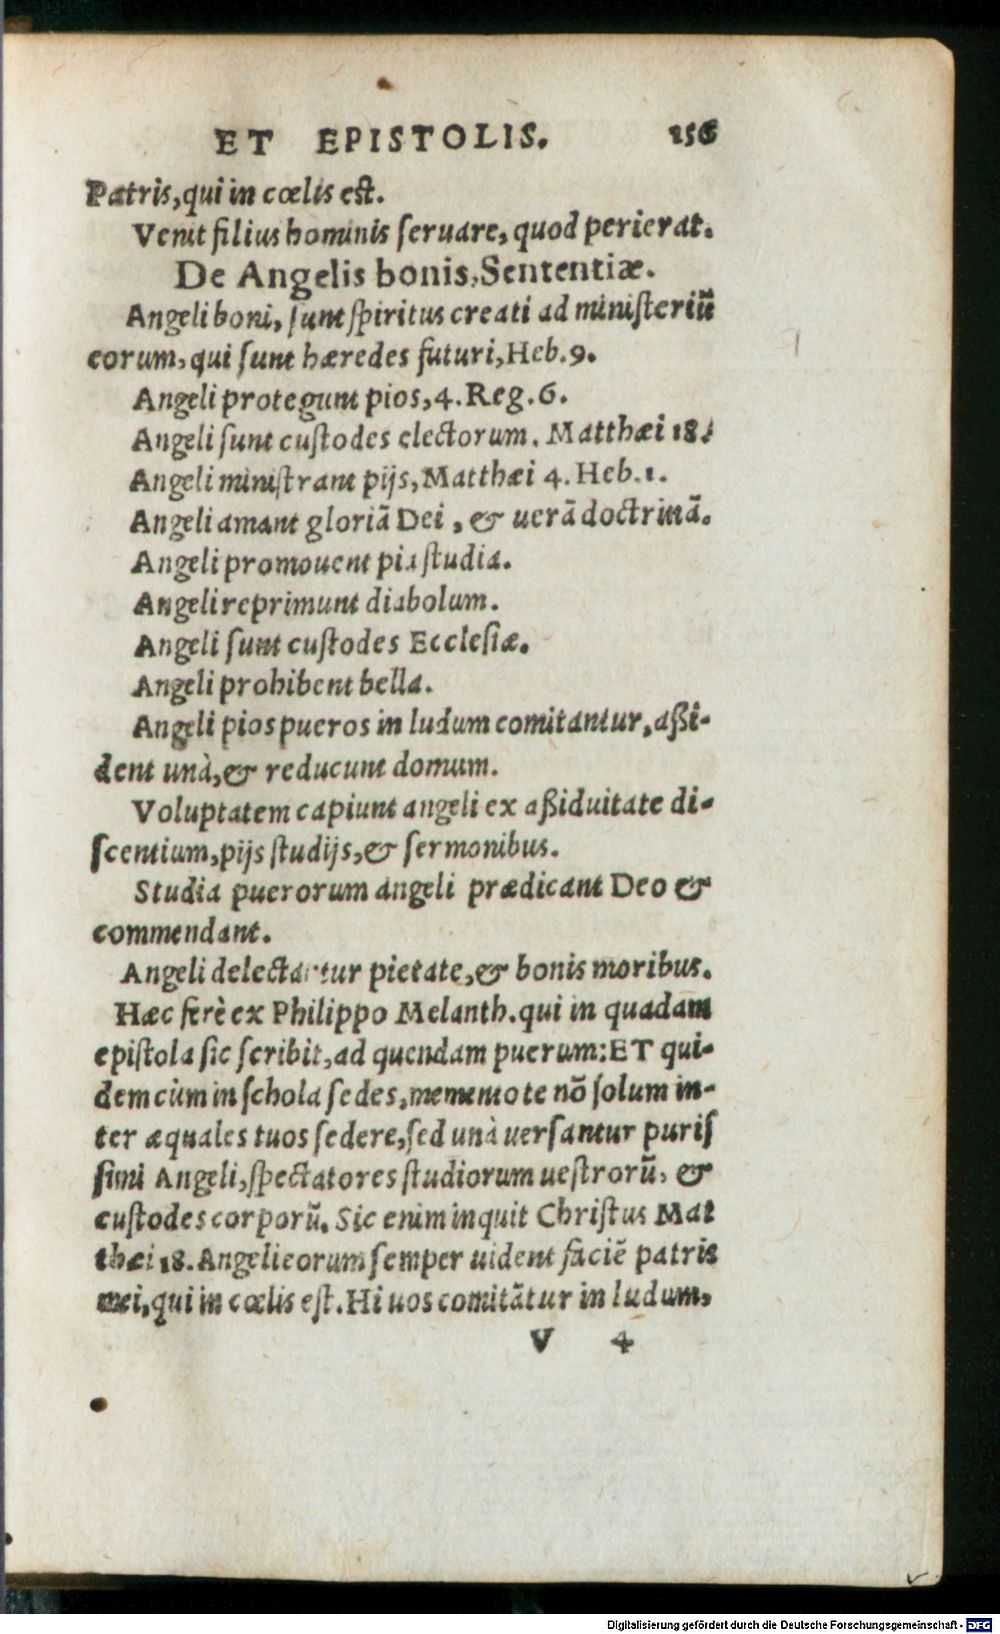 ET EPISTOLIS. 156
Patris, qui in cœlis est.
Venit filius hominis ſeruare, quod perierat.
De Angelis bonis, Sententiæ.
Angeli boni, ſunt ſpiritus creati ad miniſteriũ
eorum, qui ſunt hæredes futuri, Heb. 9.
Angeli protegunt pios, 4. Reg. 6.
Angeli ſunt cuſtodes electorum. Matthæi 18.
Angeli miniſtrant pijs, Matthæi 4. Heb. 1.
Angeli amant gloriã Dei, & uerã doctrinã.
Angeli promouent pia ſtudia.
Angeli reprimunt diabolum.
Angeli ſunt cuſtodes Eccleſiæ.
Angeli prohibent bella.
Angeli pios pueros in ludum comitantur, aßi-
dent unà, & reducunt domum.
Voluptatem capiunt angeli ex aßiduitate di-
ſcentium, pijs ſtudijs, & ſermonibus.
Studia puerorum angeli prædicant Deo &
commendant.
Angeli delectantur pietate, & bonis moribus.
Hæc ferè ex Philippo Melanth. qui in quadam
epiſtola ſic ſcribit, ad quendam puerum: ET qui-
dem cùm in ſchola ſedes, memento te nõ ſolum in-
ter æquales tuos ſedere, ſed unà uerſantur puriſ
ſimi Angeli, ſpectatores ſtudiorum ueſtrorũ, &
cuſtodes corporũ. Sic enim inquit Chriſtus Mat
thæi 18. Angeli eorum ſemper uident faciẽ patris
mei, qui in cœlis eſt. Hi uos comitãtur in ludum,
V 4
Digitalisierung gefördert durch die Deutsche Forschungsgemeinschaft - DFG